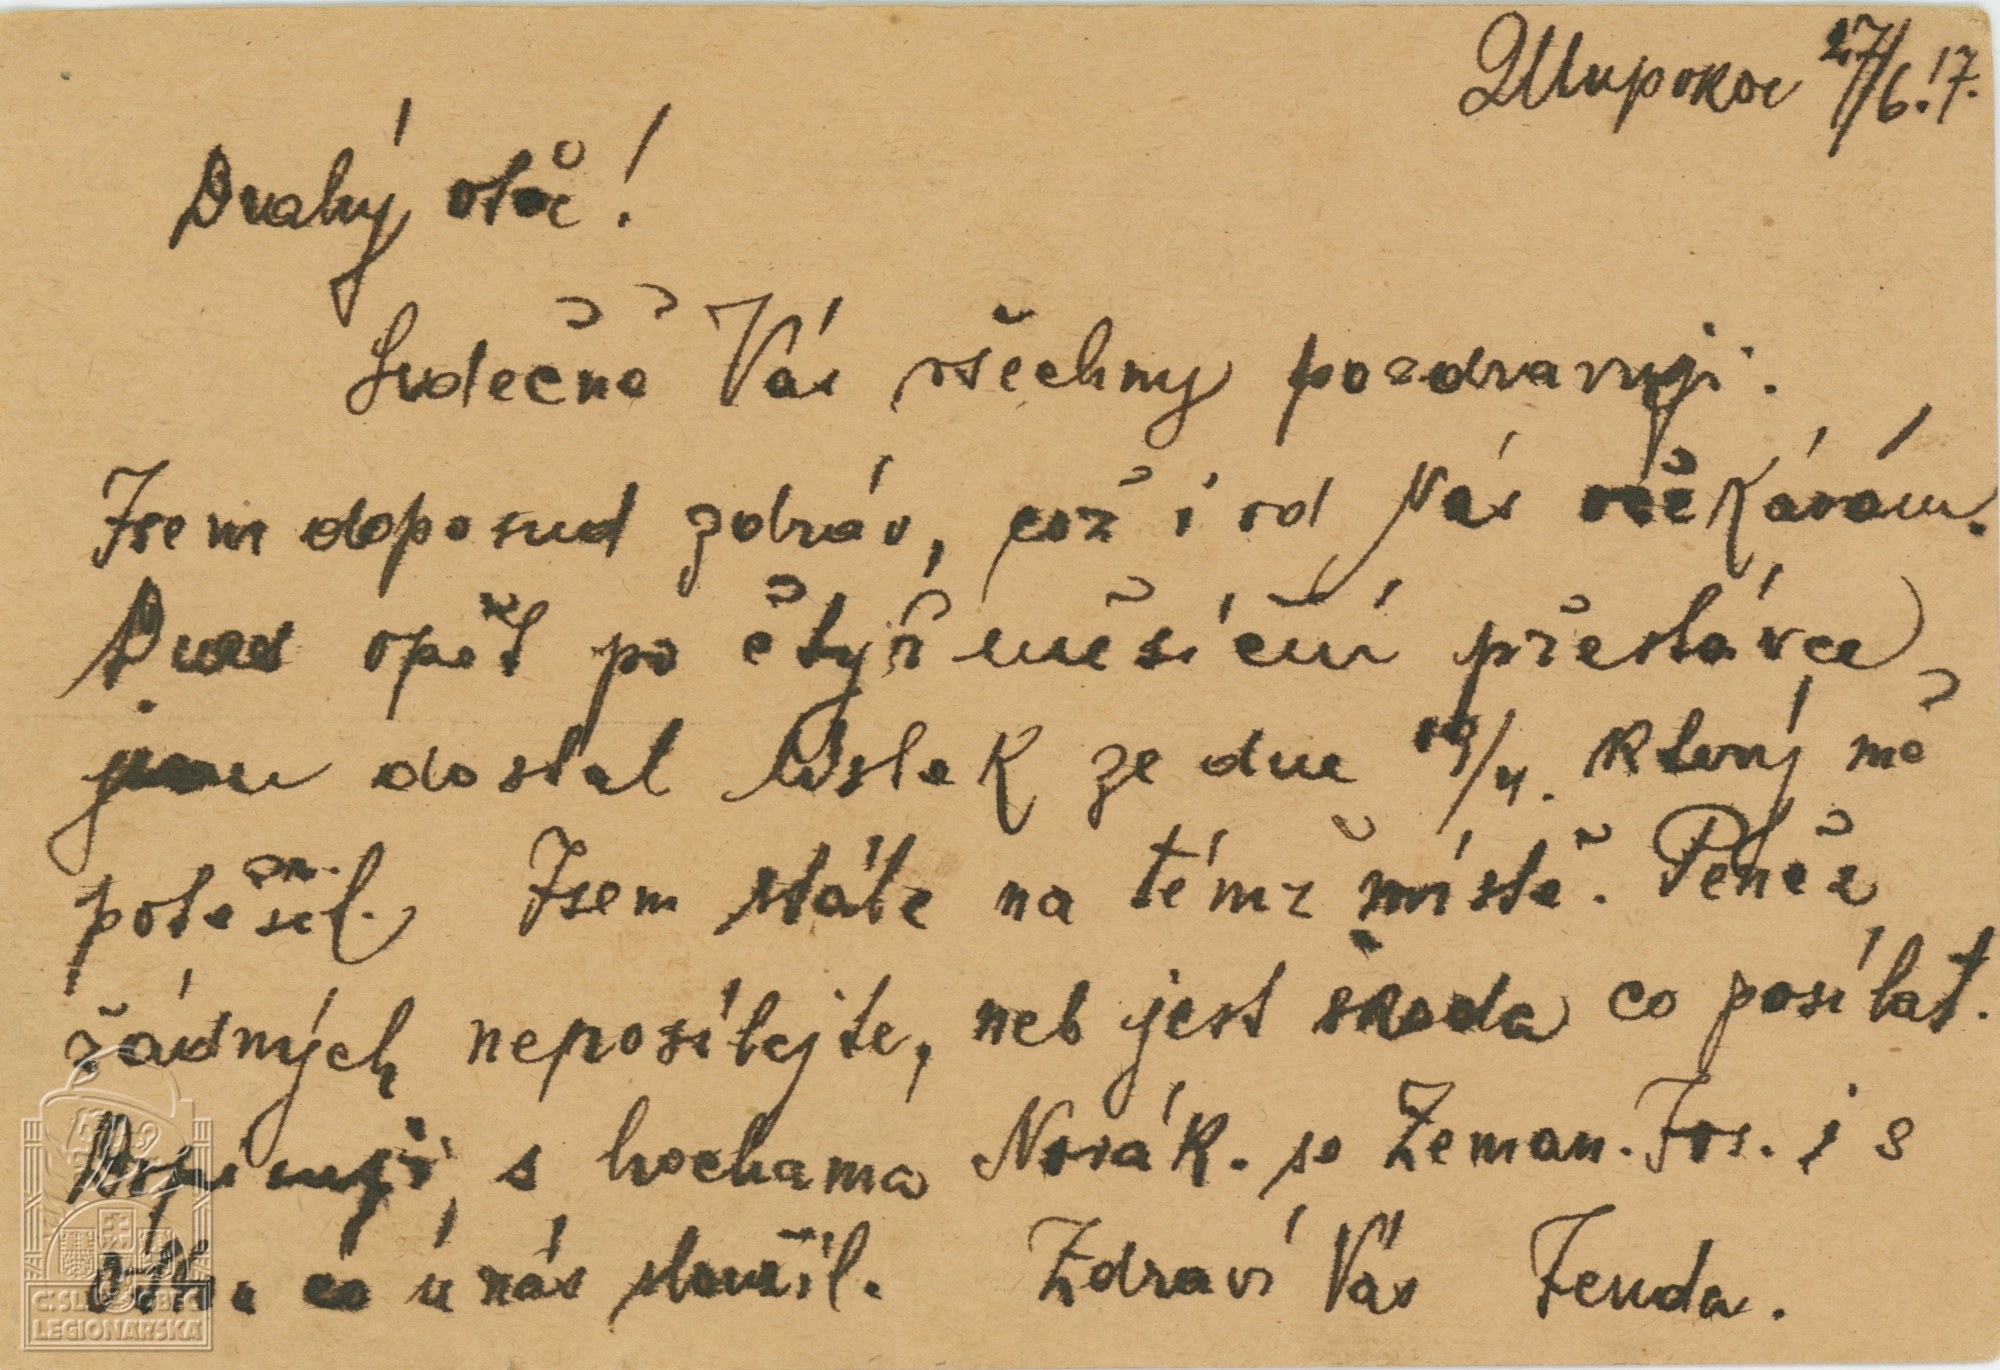 Широкое 27/6.17.
Drahý otče!
Srdečně Vás všechny pozdravuji.
Jsem doposud zdráv, což i od Vás očekávám.
Dnes opět po čtyřměsíční přestávce
jsem dostal lístek ze dne 19/4. který mě
potěšil. Jsem stále na témž místě. Peněz
žádných neposílejte, neb jest škoda co posílat.
Dopisuji s hochama Novák. Jo Zeman. Jos. i s
co u nás sloužil. Zdraví Vás Jenda.
C. SL. OBEC
LEGIONÁŘSKÁ